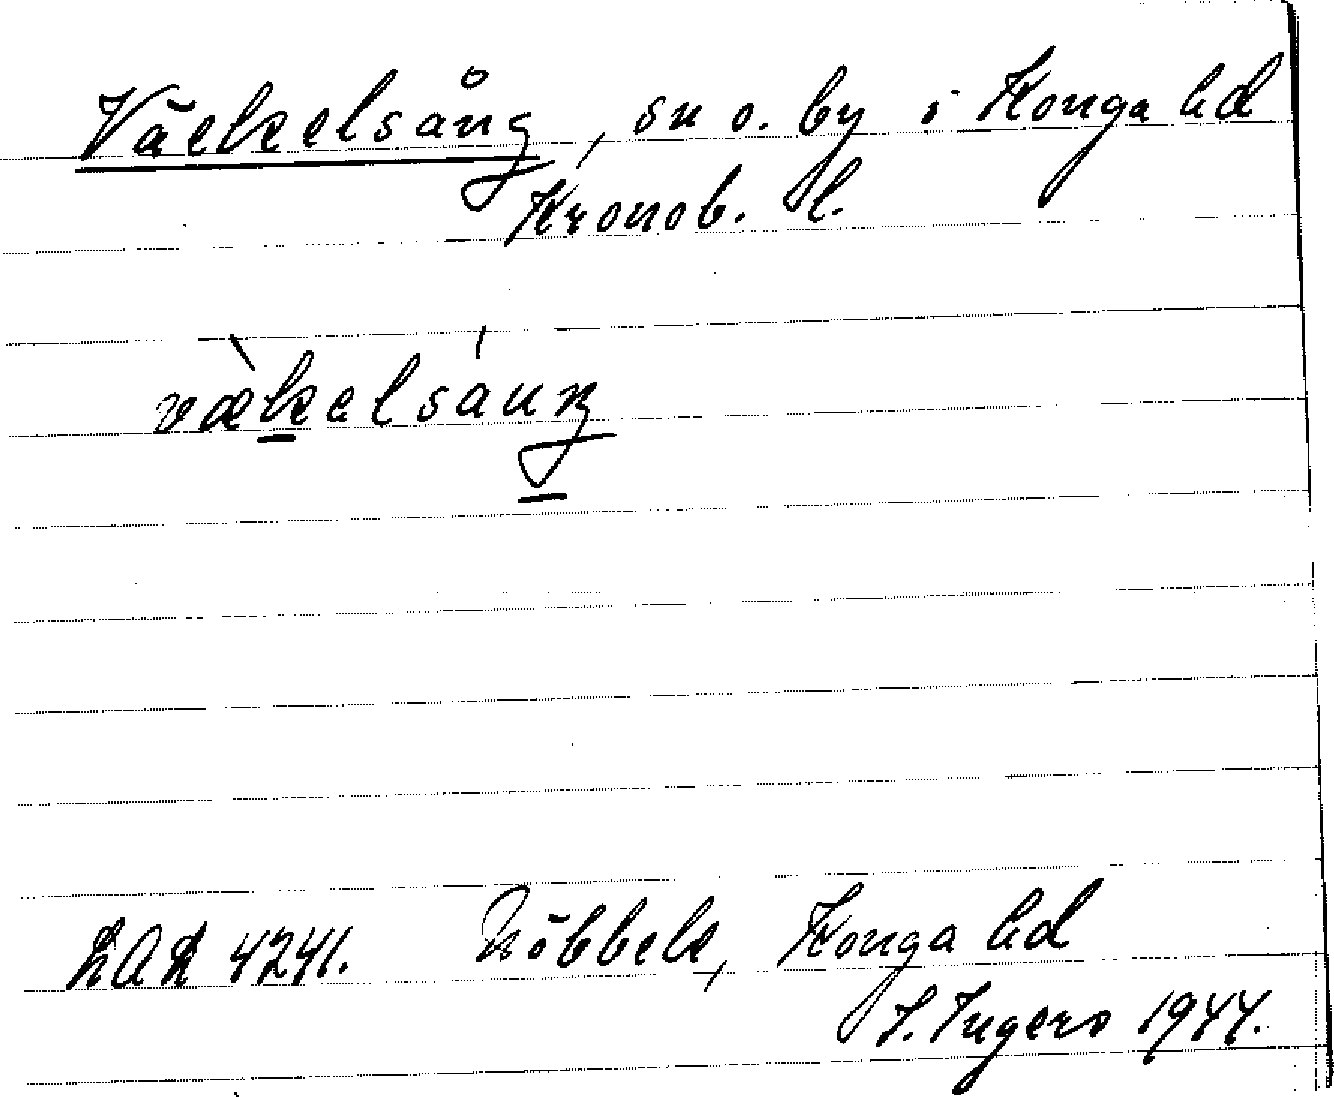 Väckelsång, sn o. by i Konga hd
Kronob. l.
vækelsáuŋ
LAL 4241. Nöbbele, Konga hd
I. Ingers 1944.